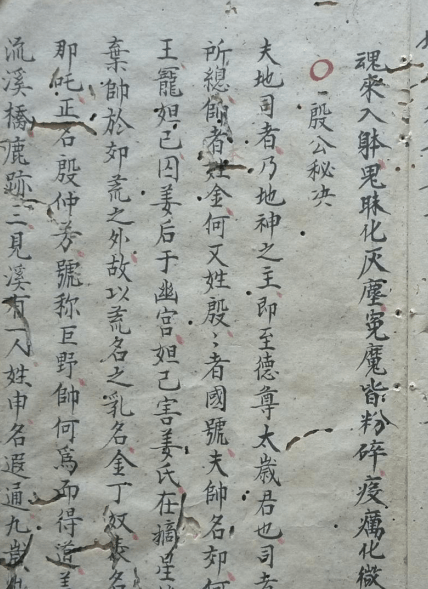 魂來入躰鬼昧化灰塵冤魔皆粉碎疫癘化微
殷公秘决
夫地司者乃地神之主即至德尊太歲君也司者
所總帥者姓金何又姓殷〻者國號夫帥名郊何
王寵妲己囚姜后于幽宮妲己害姜氏在摘星
棄帥於郊荒之外故以荒名之乳名金丁奴長名
那吒正名殷仲芳號称巨野帥何為而得道
流溪橋鹿跡三見溪有一人姓申名遐通九歲